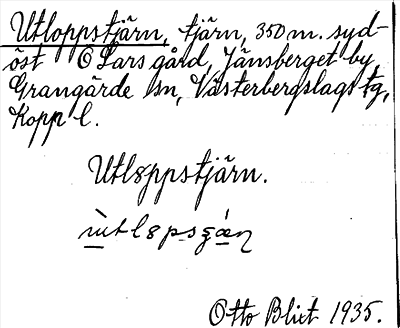 Utloppstjärn, tjärn, 350 m. syd-
öst O Lars gård, Jänsberget by
Grangärde sn, Västerbergslags tg,
Kopp. l.
Utlåppstjärn.
Otto Blixt 1935.